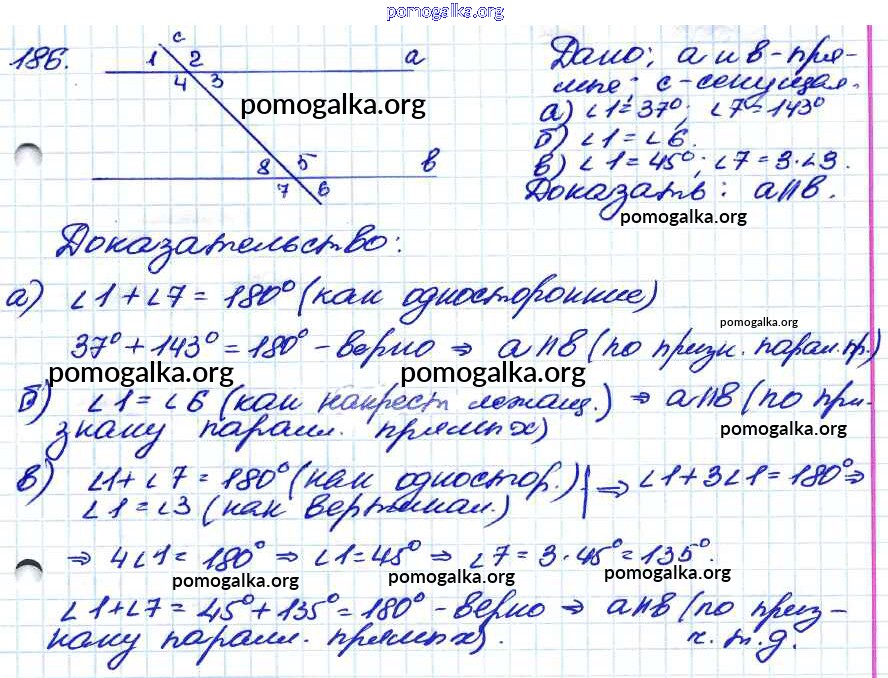 pomogalka.org
186.
c
1 2 a
4 3
8 5 в
7 6
pomogalka.org
Дано: a и в - пря-
мые; c - секущая.
а) ∠1=37°; ∠7=143°
б) ∠1=∠6.
в) ∠1=45°; ∠7=3·∠3.
Доказать: a||в.
pomogalka.org
Доказательство:
а) ∠1+∠7=180° (как односторонние)
pomogalka.org
37°+143°=180° - верно ⇒ a||в (по призн. парал. пр.)
pomogalka.org pomogalka.org
б) ∠1=∠6 (как накрест лежащ.) ⇒ a||в (по при-
знаку паралл. прямых)
pomogalka.org
в) ∠1+∠7=180° (как одностор.) | ⇒ ∠1+3∠1=180° ⇒
∠1=∠3 (как вертикал.)
⇒ 4∠1=180° ⇒ ∠1=45° ⇒ ∠7=3·45°=135°.
pomogalka.org pomogalka.org pomogalka.org
∠1+∠7=45°+135°=180° - верно ⇒ a||в (по приз-
наку паралл. прямых). ч.т.д.